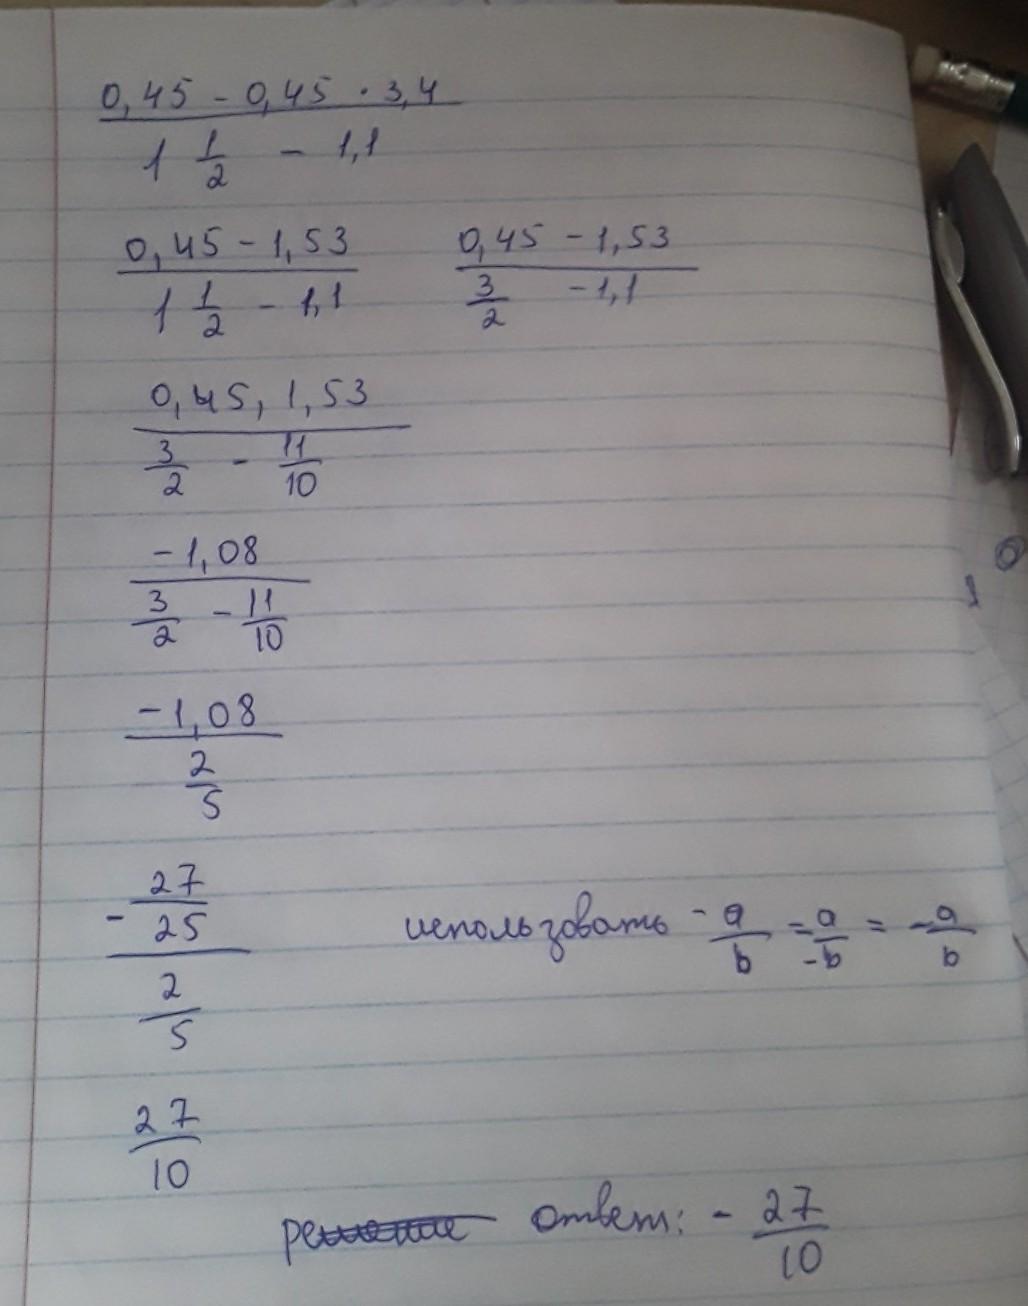 0,45 - 0,45 · 3,4
1 1/2 - 1,1
0,45 - 1,53 0,45 - 1,53
1 1/2 - 1,1 3/2 - 1,1
0,45, 1,53
3/2 - 11/10
-1,08
3/2 - 11/10
-1,08
2/5
- 27/25 использовать -a/b = a/-b = -a/b
2/5
27/10
ответ: - 27/10